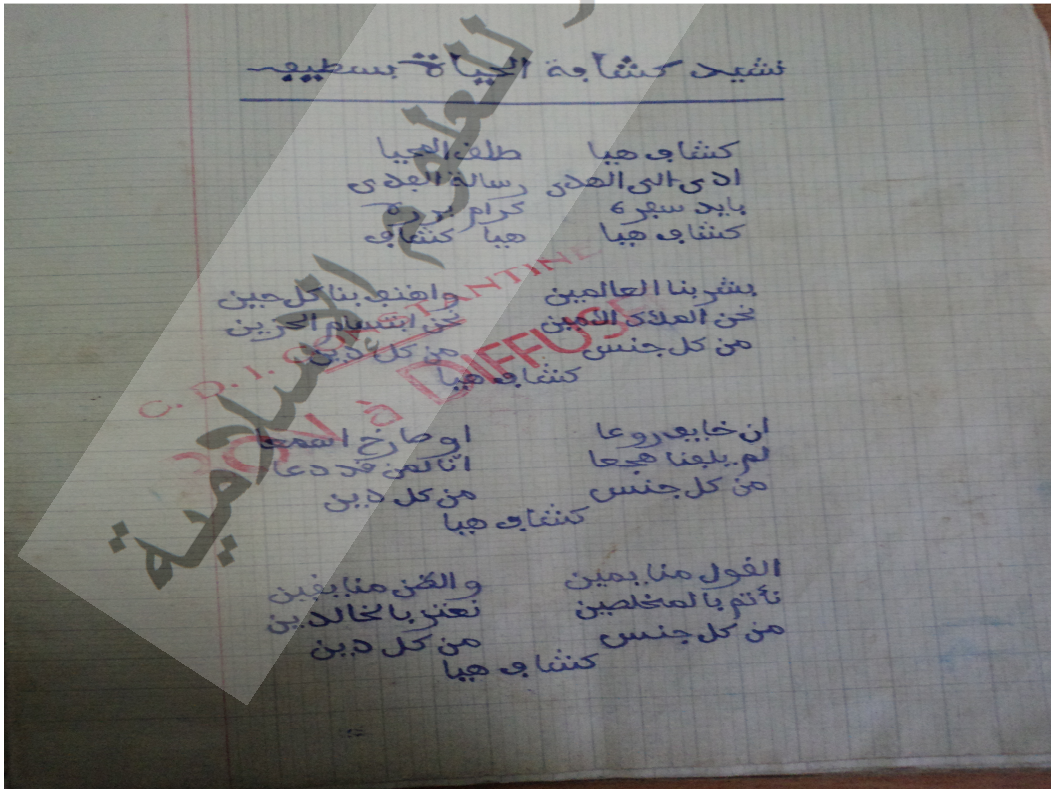 نشيد كشافة الحياة بسطيف
كشاف هيا طلق المحيا
ادى الى الهدى رسالة الفدى
بايد سفرة كرام بررة
كشاف هيا هيا كشاف
بشر بنا العالمين واهتف بنا كل حين
نحن الملاك الامين نحن ابتسام الحزين
من كل جنس من كل دين
كشاف هيا
ان خايف روعا او صارخ اسمعا
لم يلفنا هجعا انا لمن قد دعا
من كل جنس من كل دين
كشاف هيا
القول منا يمين والظن منا يقين
نأتم بالمخلصين نعتز بالخالدين
من كل جنس من كل دين
كشاف هيا
للعلوم الإسلامية
C. D. I. CONSTANTINE
DIFFUSE